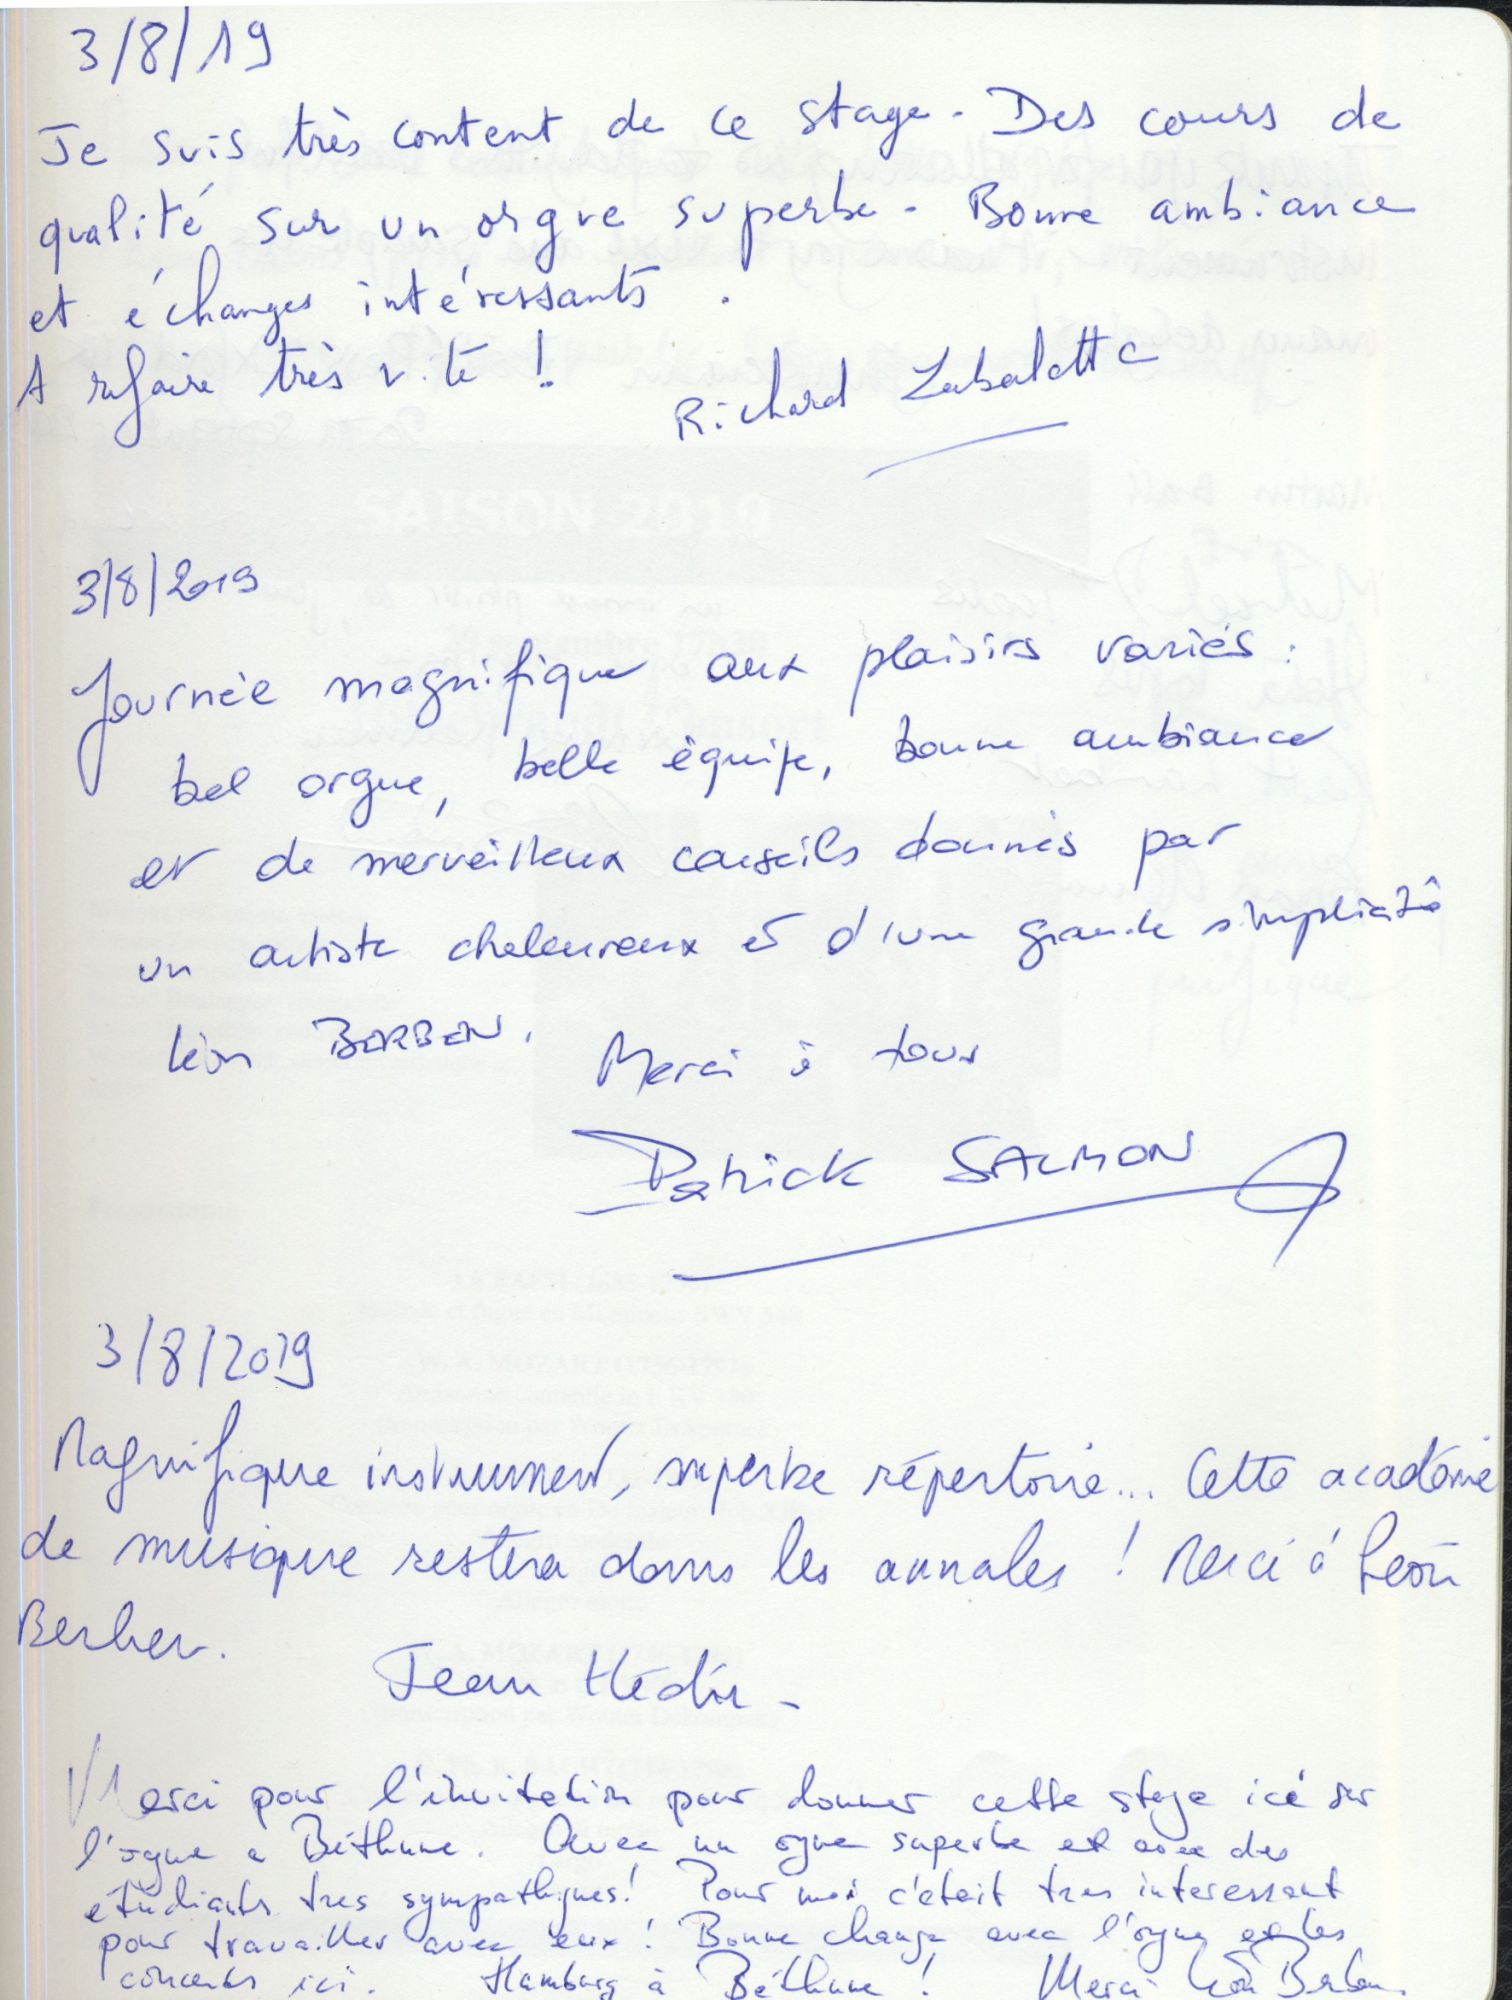 3/8/19
Je suis très content de ce stage. Des cours de
qualité sur un orgue superbe. Bonne ambiance
et échanges intéressants.
A refaire très vite !
Richard Zabaletta
3/8/2019
Journée magnifique aux plaisirs variés :
bel orgue, belle équipe, bonne ambiance
et de merveilleux conseils donnés par
un artiste chaleureux et d'une grande simplicité
Léon BERBEN.
Merci à tous
Patrick SALMON
3/8/2019
Magnifique instrument, superbe répertoire... Cette académie
de musique restera dans les annales ! Merci à Léon
Berben.
Jean Hédin -
SAISON 2010
Merci pour l'invitation pour donner cette stage ici sur
l'orgue a Béthune. Avec un orgue superbe et avec des
étudiants tres sympathiques! Pour moi c'était tres interessant
pour travailler avec eux! Bonne change avec l'orgue et les
concerts ici. Hamburg à Béthune! Merci Léon Berben